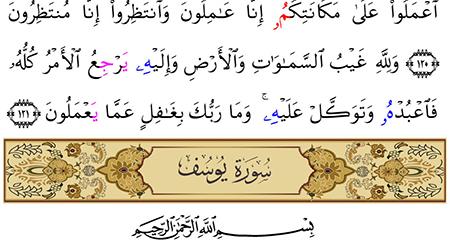 ٱعۡمَلُوا۟ عَلَىٰ مَكَانَتِكُمُۥ إِنَّا عَـٰمِلُونَ وَٱنتَظِرُوٓا۟ إِنَّا مُنتَظِرُونَ
﴿١٢٠﴾ وَلِلَّهِ غَيۡبُ ٱلسَّمَـٰوَٰتِ وَٱلۡأَرۡضِ وَإِلَيۡهِۦ يَرۡجِعُ ٱلۡأَمۡرُ كُلُّهُۥ
فَٱعۡبُدۡهُۥ وَتَوَكَّلۡ عَلَيۡهِۦۚ وَمَا رَبُّكَ بِغَـٰفِلٍ عَمَّا يَعۡمَلُونَ ﴿١٢١﴾
سُورَةُ يُوسُفَ
بِسۡمِ ٱللَّهِ ٱلرَّحۡمَـٰنِ ٱلرَّحِيمِ